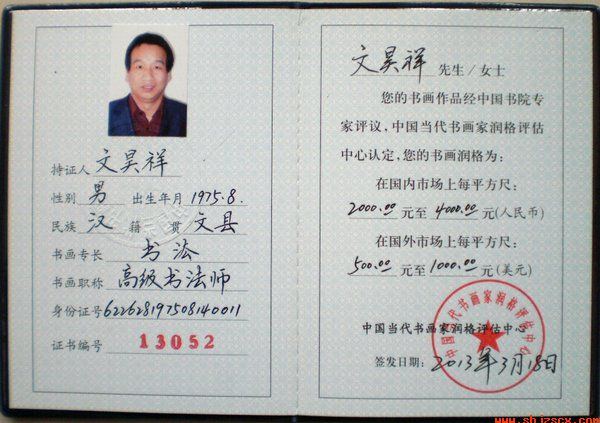 持证人 文昊祥
性别 男 出生年月 1975.8.
民族 汉 籍贯 文县
书画专长 书法
书画职称 高级书法师
身份证号 622628197508140011
证书编号 13052
文昊祥 先生/女士
您的书画作品经中国书院专
家评议,中国当代书画家润格评估
中心认定,您的书画润格为:
在国内市场上每平方尺:
2000.00 元至 4000.00 元(人民币)
在国外市场上每平方尺:
500.00 元至 1000.00 元(美元)
中国当代书画家润格评估中心
签发日期: 2013年3月18日
中国当代书画家润格评估中心
www.sbjzscx.com